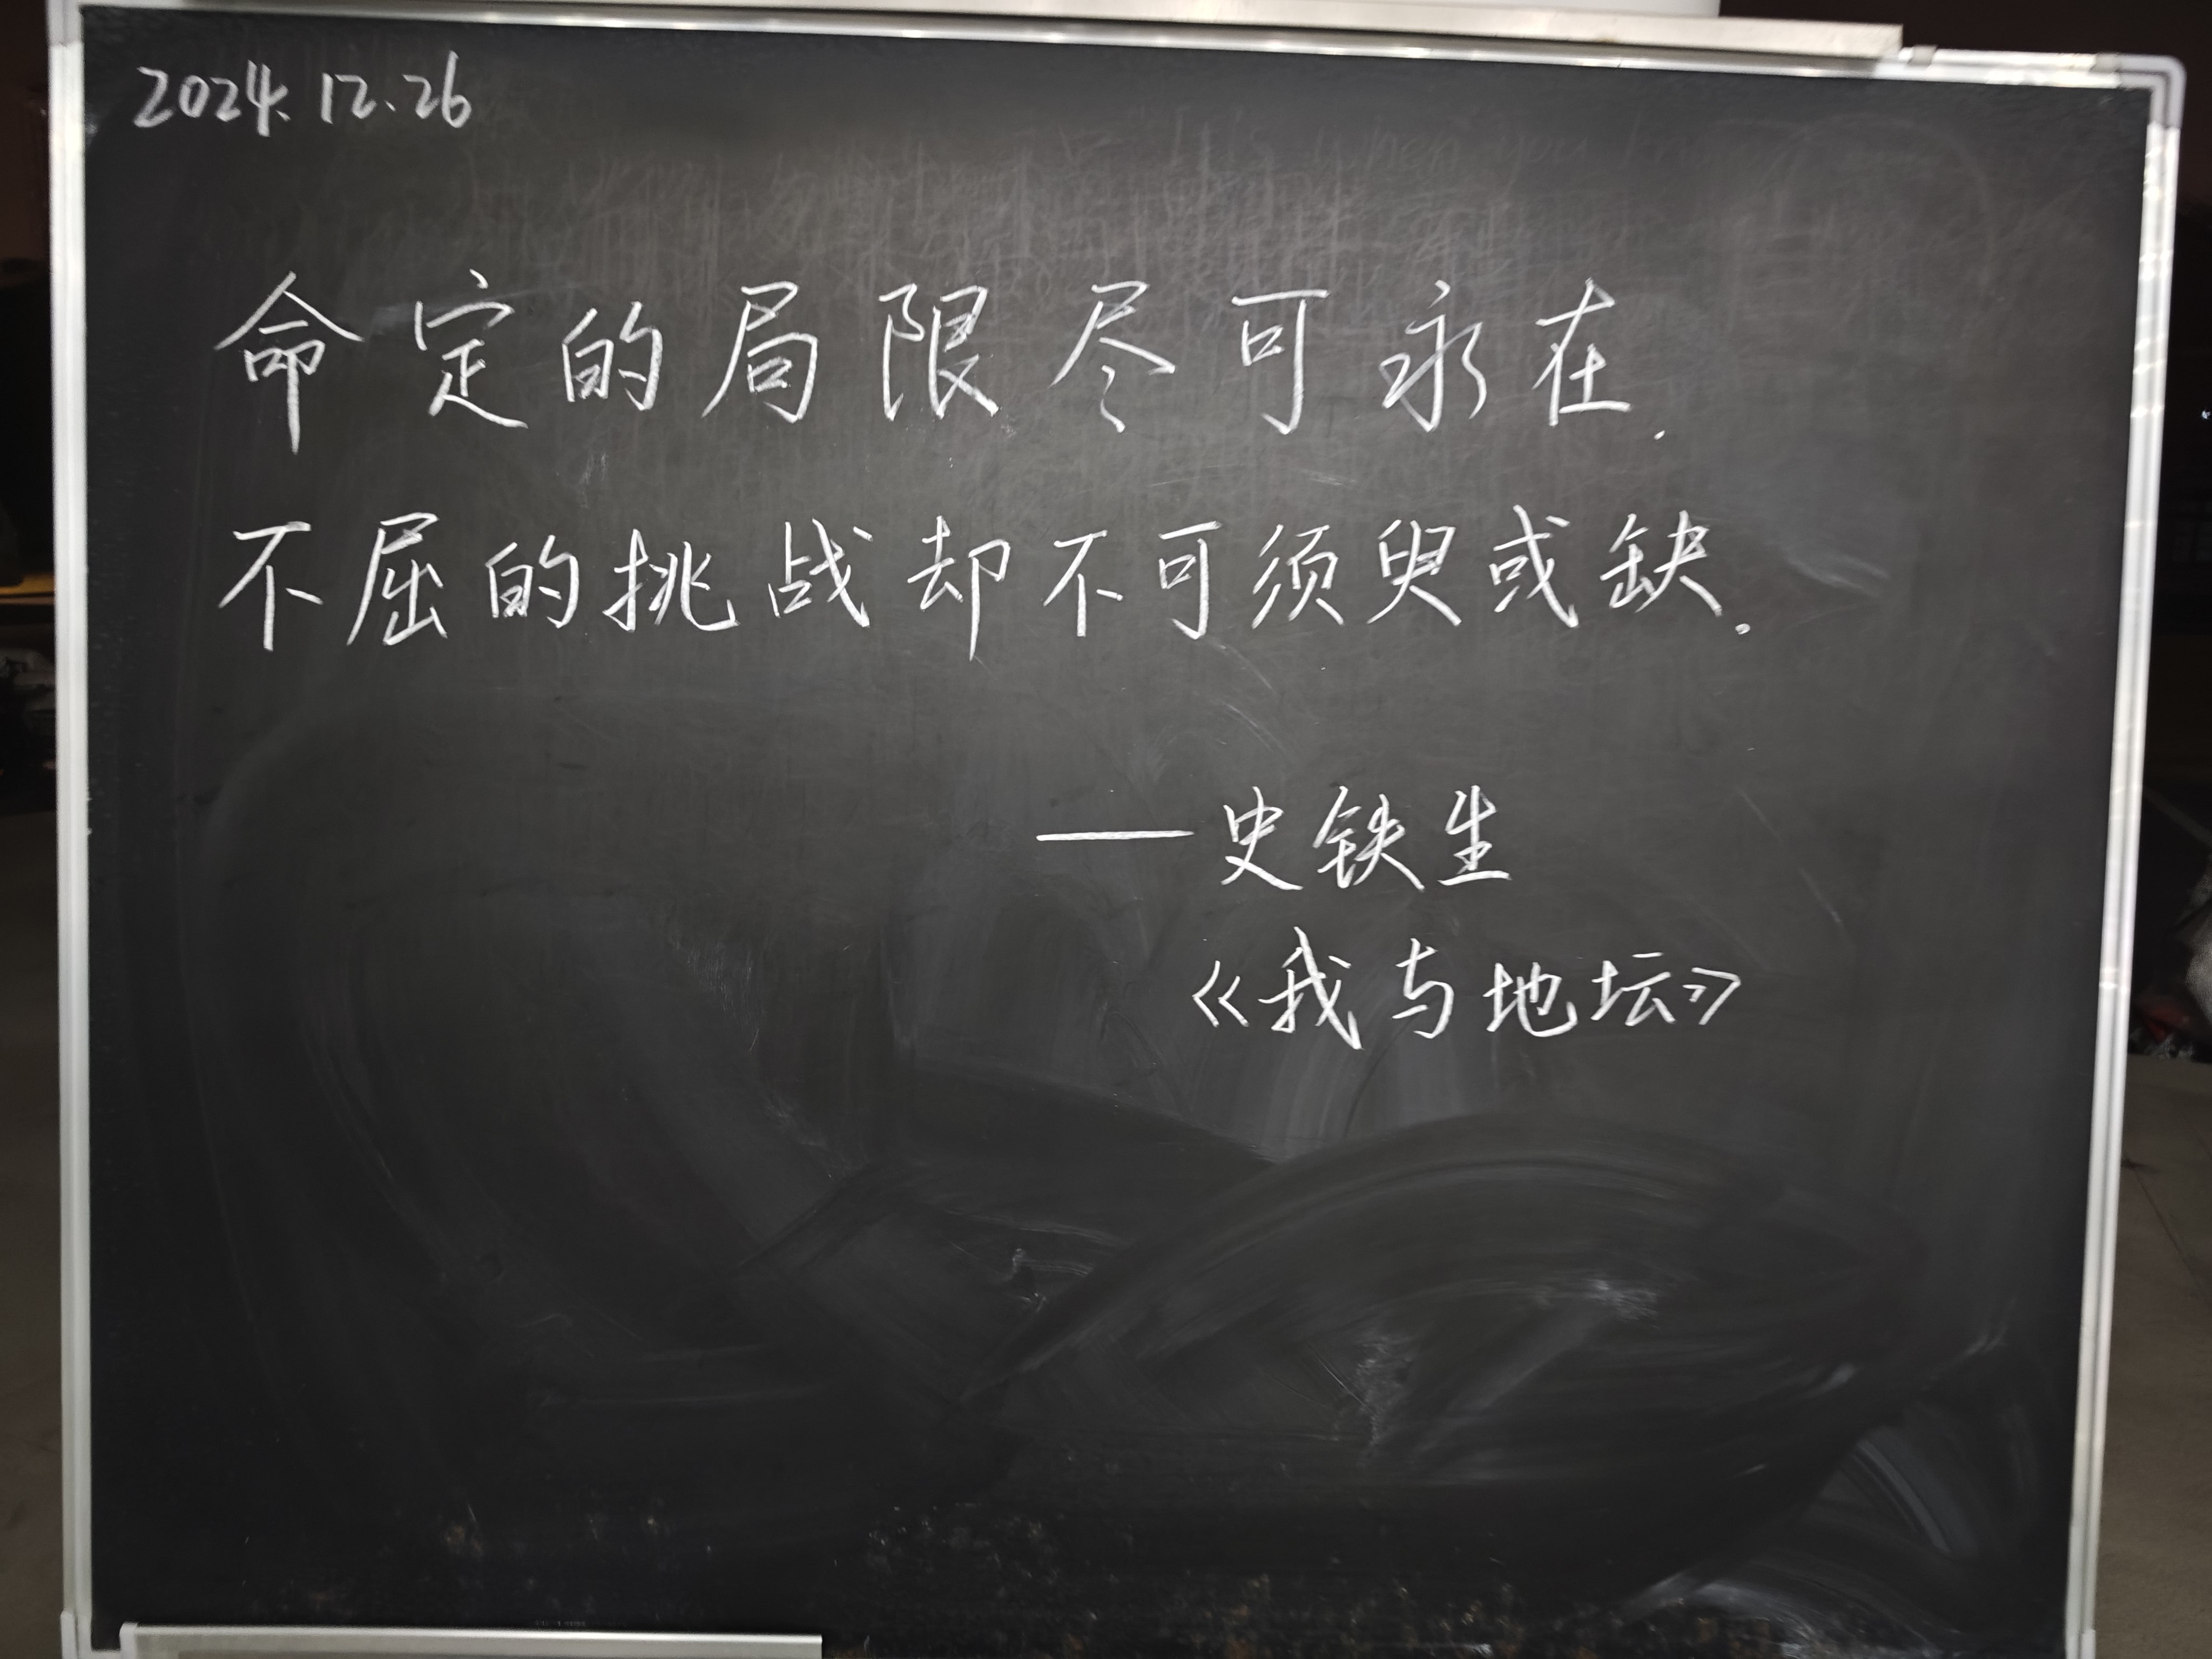 2024.12.26
命定的局限尽可永在.
不屈的挑战却不可须臾或缺.
——史铁生
《我与地坛》